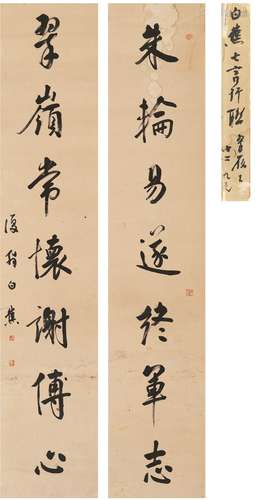 白蕉七言行联
朱輪易遂終軍志
翠嶺常懷謝傅心
復翁白蕉